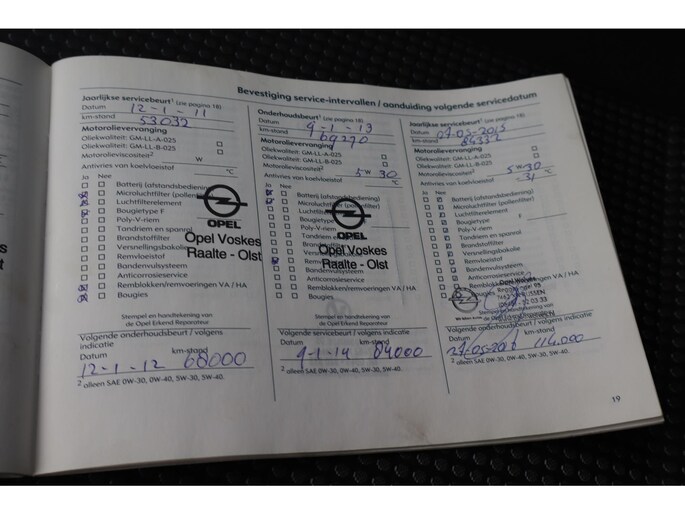 Bevestiging service-intervallen / aanduiding volgende servicedatum
Jaarlijkse servicebeurt¹ (zie pagina 18)
Datum 12-1-11
km-stand 53032
Motorolievervanging
Oliekwaliteit: GM-LL-A-025
Oliekwaliteit: GM-LL-B-025
Motorolieviscositeit² W
Antivries van koelvloeistof °C
Ja Nee
Batterij (afstandsbediening)
Microluchtfilter (pollenfilter)
Luchtfilterelement
Bougietype F
Poly-V-riem
Tandriem en spanrol
Brandstoffilter
Versnellingsbakolie
Remvloeistof
Bandenvulsysteem
Anticorrosieservice
Remblokken/remvoeringen VA / HA
Bougies
OPEL
Opel Voskes
Raalte - Olst
Stempel en handtekening van
de Opel Erkend Reparateur
Volgende onderhoudsbeurt / volgens
indicatie
Datum km-stand
12-1-12 68000
² alleen SAE 0W-30, 0W-40, 5W-30, 5W-40.
Onderhoudsbeurt¹ (zie pagina 18)
Datum 9-1-13
km-stand 69290
Motorolievervanging
Oliekwaliteit: GM-LL-A-025
Oliekwaliteit: GM-LL-B-025
Motorolieviscositeit² 5 W 30
Antivries van koelvloeistof °C
Ja Nee
Batterij (afstandsbediening)
Microluchtfilter
Luchtfilterelement
Bougietype F
Poly-V-riem
Tandriem en spanrol
Brandstoffilter
Versnellingsbakolie
Remvloeistof
Bandenvulsysteem
Anticorrosieservice
Remblokken/remvoeringen VA / HA
Bougies
OPEL
Opel Voskes
Raalte - Olst
Stempel en handtekening van
de Opel Erkend Reparateur
Volgende servicebeurt / volgens indicatie
Datum km-stand
9-1-14 84000
² alleen SAE 0W-30, 0W-40, 5W-30, 5W-40.
Jaarlijkse servicebeurt¹ (zie pagina 18)
Datum 27-05-2015
km-stand
Motorolievervanging
Oliekwaliteit: GM-LL-A-025
Oliekwaliteit: GM-LL-B-025
Motorolieviscositeit² 5 W 30
Antivries van koelvloeistof °C
Ja Nee
Batterij (afstandsbediening)
Microluchtfilter (pollenfilter)
Luchtfilterelement
Bougietype F
Poly-V-riem
Tandriem en spanrol
Brandstoffilter
Versnellingsbakolie
Remvloeistof
Bandenvulsysteem
Anticorrosieservice
Remblokken/remvoeringen VA / HA
Bougies
Stempel en handtekening van
Volgende onderhoudsbeurt / volgens
indicatie
Datum km-stand
114.000
² alleen SAE 0W-30, 0W-40, 5W-30, 5W-40.
19